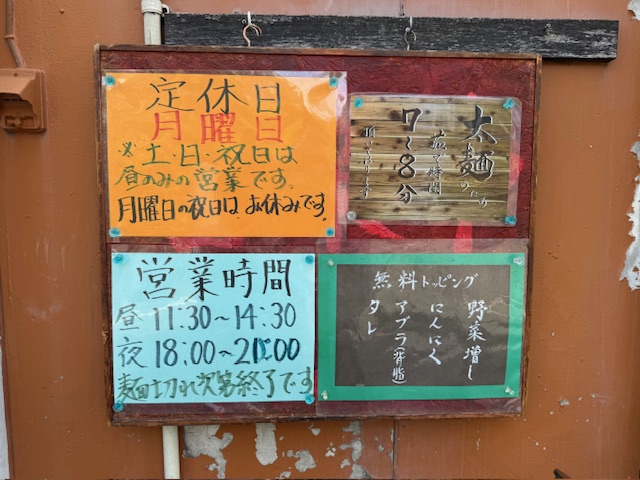 定休日
月曜日
※土・日・祝日は
昼のみの営業です。
月曜日の祝日はお休みです。
太麺のため
茹で時間
7～8分
営業時間
昼11:30～14:30
夜18:00～21:00
麺切れ次第終了です
無料トッピング
野菜増し
にんにく
アブラ(背脂)
タレ